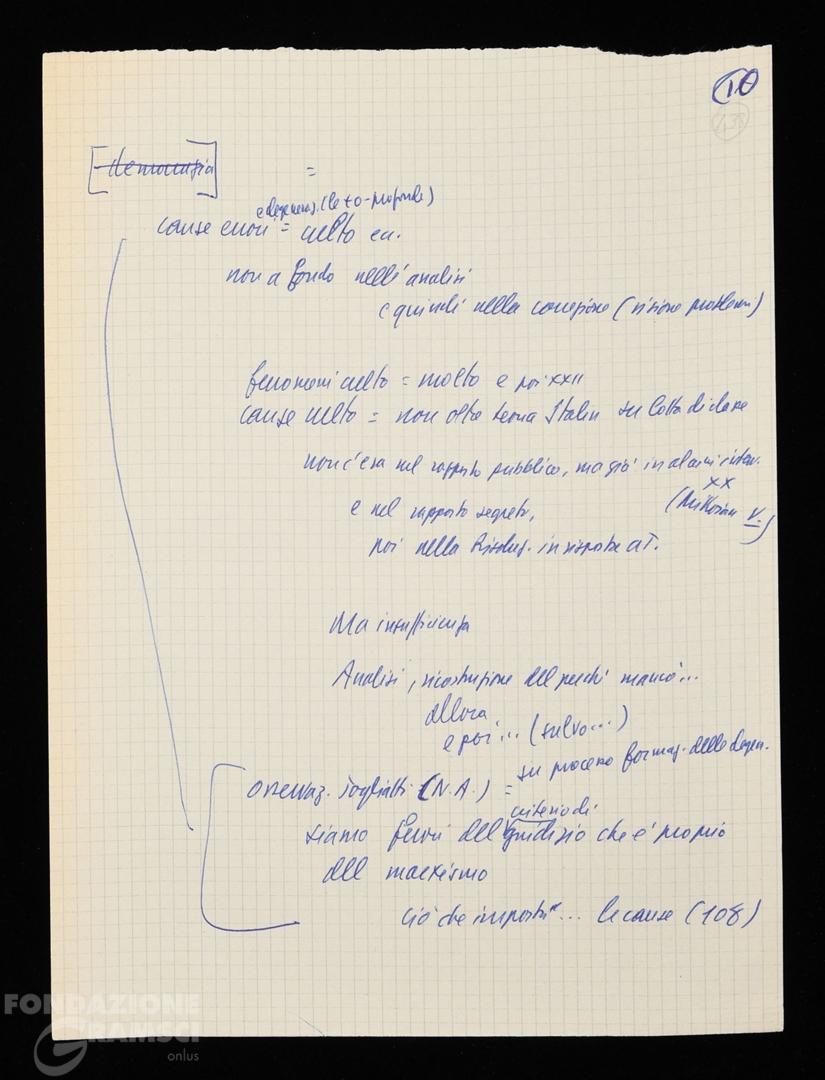 10
438
[democrazia]
=
e degeneraz. (le + o - profonde)
cause errori = culto ecc.
non a fondo nelle analisi
e quindi nella correzione (visione problemi)
fenomeni culto = molto e poi XXII
cause culto = non oltre teoria Stalin su lotta di classe
non c'era nel rapporto pubblico, ma già in alcuni interv.
XX
e nel rapporto segreto,
(Mikoian V.)
poi nella Risoluz. in risposta a T.
Ma insufficienza
Analisi, ricostruzione del perché mancò...
allora
e poi... (salvo...)
su processo formaz. delle degen.
osservaz. Togliatti (N.A.) =
criterio di
siamo fuori del giudizio che è proprio
del marxismo
"ciò che importa"... le cause (108)
FONDAZIONE
GRAMSCI
onlus